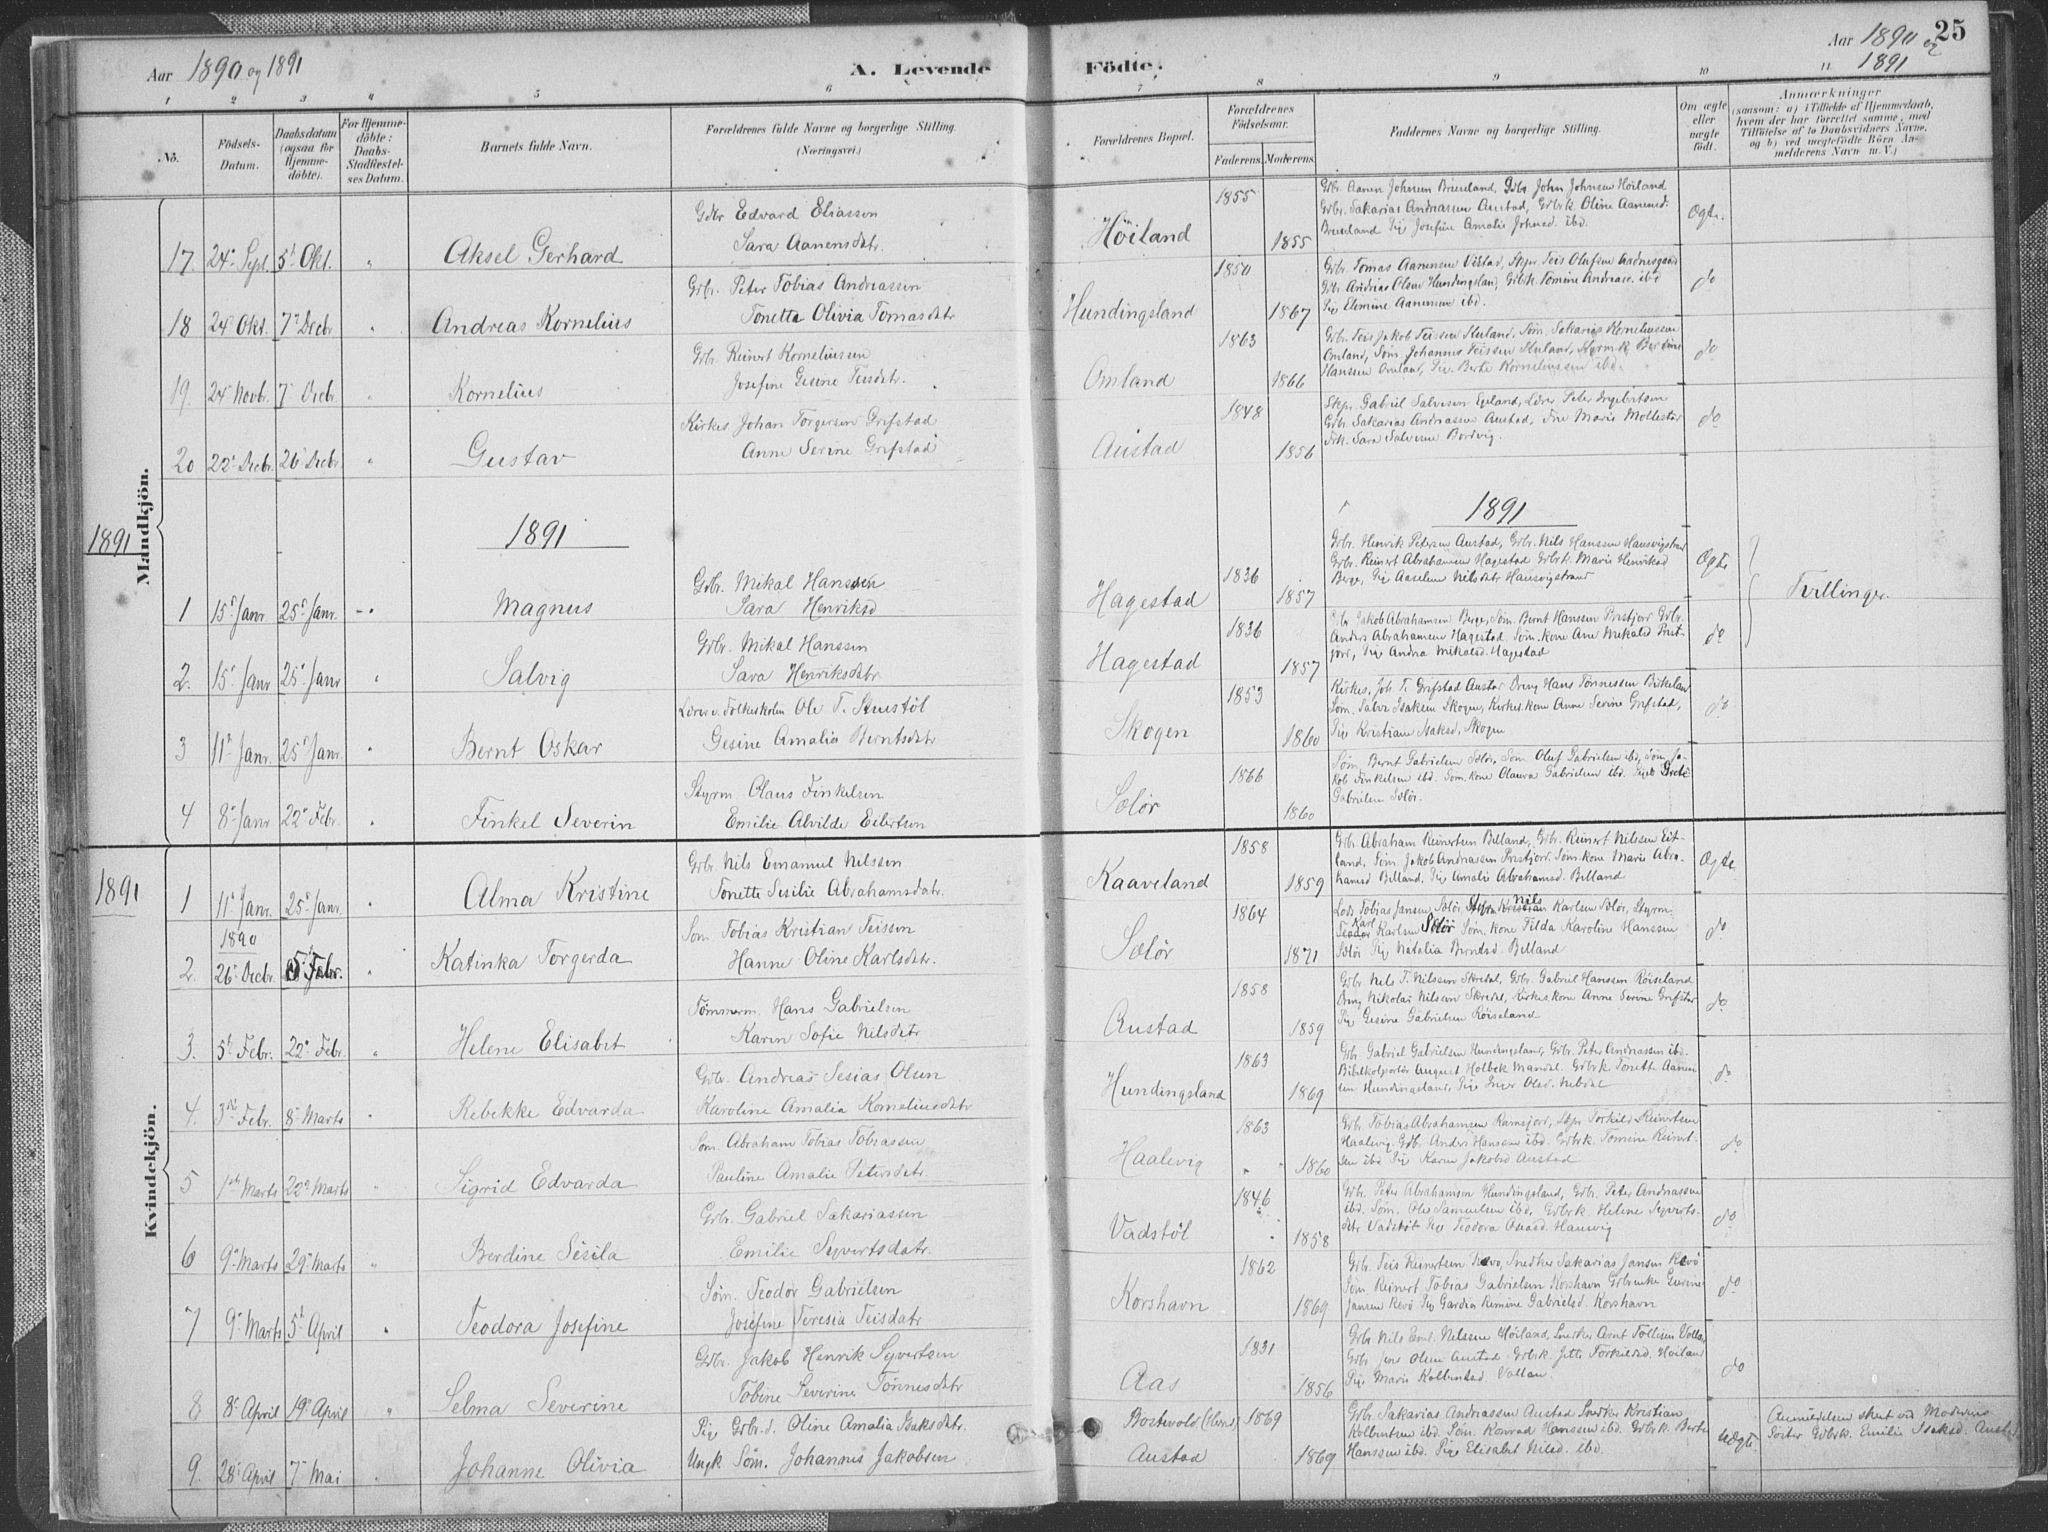 Aar 1890 og 1891
A. Levende Födte.
Aar 1890 og 1891
25
1 2 3 4 5 6 7 8 9 10 11
No.
Födsels-Datum.
Daabsdatum (ogsaa for Hjemme-döbte).
For Hjemme-döbte: Daabs-Stadfæstel-ses Datum.
Barnets fulde Navn.
Forældrenes fulde Navne og borgerlige Stilling. (Næringsvei.)
Forældrenes Bopæl.
Forældrenes Födselsaar.
Faderens. Moderens.
Faddernes Navne og borgerlige Stilling.
Om ægte eller uægte födt.
Anmærkninger
(saasom: a) i Tilfælde af Hjemmedaab, hvem der har forrettet samme, med Tilföielse af to Daabsvidners Navne, og b) ved uægtefödte Börn An-melderens Navn m. V.)
Mandkjön.
17. 24de Sept. 5te Okt. " Aksel Gerhard
Gdbr Edvard Eliassen
Sara Aanensdtr.
Höiland 1855 1855
Gdbr. Aanen Johnsen Briseland, Gdbr John Johnsen Höiland
Gdbr. Sakarias Andreassen Austad, Gdbrk. Oline Aanensd.
Briseland Pig Josefine Amalie Johnsd. ibd.
Ægte.
18 24 Okt. 7de Decbr " Andreas Kornelius
Gdbr. Peter Tobias Andreassen
Tonette Olivia Tomasdtr
Hundingsland 1850 1867
Gdbr. Andreas Olsen Hundingsland, Gdbrk Tomine Andreass. ibd
Pig Elemine Aanensen ibd.
do
19. 24 Novbr. 7 Decbr. " Kornelius
Gdbr. Reinert Korneliussen
Josefine Gesine Teisdtr.
Omland 1863 1866
Omland, Söm. Johannes Teissen Stuland, Styrm.k. Bertine
Hanssen Omland, Pig. Berte Korneliussen ibd.
do
20 22 Decbr. 26 Decbr " Gustav
Kirkes Johan Torgersen Grifstad
Anne Serine Grifstad
Austad 1848 1856
Skpr. Gabriel Salvesen Egeland, Lærer Peter Ingebretsen
Gdbr. Sakarias Andreassen Austad, Frk Marie Mollestad
Frk. Sara Salvesen Bordvig.
do
1891
1891
1891
1 15de Janr 25de Janr. " Magnus
Gdbr. Mikal Hanssen
Sara Henriksd
Hagestad 1836 1857
Gdbr. Henrik Petersen Austad, Gdbr. Nils Hanssen Hausvigstrand
Gdbr. Reinert Abrahamsen Hagestad Gdbrk. Marie Henriksd
Berge, Pig Aaselene Nilsdtr Hausvigstrand
Ægte
Tvillinger.
2. 15de Janr 25de Janr " Salvig
Gdbr. Mikal Hanssen
Sara Henriksdtr
Hagestad 1836 1857
Gdbr Jakob Abrahamsen Berge, Söm. Bernt Hanssen Prestfjorr Gdbr.
Anders Abrahamsen Hagestad. Söm. kone Ane Mikalsd Prest-
fjorr, Pig Andrea Mikalsd. Hagestad
do
3 11te Janr. 25de Janr. " Bernt Oskar
Lærer v. Folkeskolen Ole T. Stustöl
Gesine Amalia Berntsdtr
Skogen 1853 1860
Kirkes. Joh. T. Grifstad Austad Dreng Hans Tönnessen Birkelan
Söm. Salve Isaksen Skogen, Kirkes. kone Anne Serine Grifstad,
Pig Kristiane Isaksd. Skogen
do
4 8de Janr 22de Febr. " Finkel Severin
Styrm. Olaus Finkelsen
Emilie Alvilde Eilertsen
Sælör 1866 1860
Söm. Bernt Gabrielsen Sælör, Söm. Oluf Gabrielsen ibd, Söm. Ja-
kob Finkelsen ibd. Söm. kone Olaura Gabrielsen ibd. Pige Grete
Gabrielsen Sælör.
1891
Kvindekjön.
1 11te Janr. 25de Janr. " Alma Kristine
Gdbr Nils Emanuel Nilssen
Tonette Sesilie Abrahamsdtr.
Kaaveland 1858 1859
Gdbr Abraham Reinertsen Belland, Gdbr. Reinert Nilssen Eit-
land, Söm. Jakob Andreassen Prestfjorr. Söm. kone Marie Abra-
hamsd Belland. Pig Amalie Abrahamsd. Belland
Ægte
1890
2. 26de Decbr. 5te Febr. " Katinka Torgerda
Söm. Tobias Kristian Teissen
Hanne Oline Karlsdtr.
Sælör 1864 1871
Lods Tobias Jansen Sælör, Styrm Kristian Nils Karlsen Sælör, Styrm.
Teodor Karl Karlsen Sælör Söm. kone Tilda Karoline Hanssen
Sælör Pig Natalia Berntsd. Belland
do
3. 5te Febr. 22de Febr. " Helene Elisabet
Tömmerm. Hans Gabrielsen
Karen Sofie Nilsdtr
Austad 1858 1859
Gdbr. Nils T. Nilssen Skredal, Gdbr. Gabriel Hanssen Röiseland
Dreng Nikolai Nilsen Skredal, Kirkes. kone Anne Serine Grifstad
Pig Gesine Gabrielsen Röiseland
do
4. 3die Febr. 8de Marts " Rebekke Edvarda
Gdbr. Andreas Sesias Olsen
Karoline Amalia Korneliusdtr
Hundingsland 1863 1869
Gdbr. Gabriel Gabrielsen Hundingsland, Gdbr. Peter Andreassen ibd.
Bibelkolportör August Holbek Mandal. Gdbrk. Tonette Aanen-
sen Hundingsland, Pig Inger Olsd. Nebdal
do
5 1ste Marts 22de Marts " Sigrid Edvarda
Söm. Abraham Tobias Tobiassen
Pauline Amalie Petersdtr.
Haalevig 1863 1860
Gdbr. Tobias Abrahamsen Ramsfjorr, Skpr. Torkild Reinertsen
Haalevig. Gdb. Anders Hanssen ibd. Gdbrk. Tomine Reinert-
sen ibd Pig Karen Jakobsd Austad
do
6 9de Marts 29de Marts " Berdine Sesila
Gdbr. Gabriel Sakariassen
Emilie Syvertsdatr.
Vadstöl 1846 1858
Gdbr. Peter Abrahamsen Hundingsland, Gdbr. Peter Andreassen
ibd. Söm. Ole Samuelsen ibd, Gdbrk. Helene Syverts-
datr Vadstöl Pig Teodora Hauvig
do
7 9de Marts 5te April " Teodora Josefine
Söm. Teodor Gabrielsen
Josefine Teresia Teisdatr
Korshavn 1862 1869
Gdbr. Teis Reinertsen Revö, Snedker Sakarias Jansen Revö
Söm. Reinert Tobias Gabrielsen Korshavn Gdbrenke Gurine
Jansen Revö Pig Gardia Remine Gabrielsd. Korshavn
do
8 8de April 19de April " Selma Severine
Gdbr. Jakob Henrik Syvertsen
Tobine Severine Tönnesdtr
Aas 1831 1856
Gdbr Nils Eml. Nilssen Höiland, Snedker Arnt Tollisen Vollan
Gdbr Jens Olsen Austad. Gdbrk. Jette Torkildsd. Höiland
Pig Marie Kolbensd. Vollan.
do
9. 28de April 7de Mai " Johanne Olivia
Pig Gdbr.d. Oline Amalia Isaksdtr.
Ungk Söm. Johannes Jakobsen
Austad 1869 1869
Gdbr. Sakarias Andreassen Austad Snedker Kristian
Kolbentsen ibd. Söm. Konrad Hanssen ibd. Gdbrk. Berte
Hanssen ibd. Pig Elisabet Nilsd. ibd.
Uægte.
Anmeldelsen skeet ved Moderens
Söster Gdbrk. Emilie Isaksd. Austad